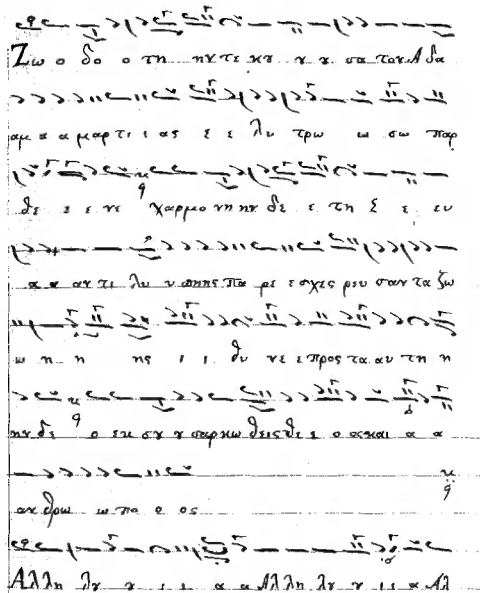 Ζω ο δο ο τη ην τε κȣ ȣ ȣ σα τον Α δα
αμ α α μαρ τι ι ας ξ ε λυ τρω ω σω παρ
θε ε ε νε χαρμο νη ην δε ε τη ξ ε ευ
α α αν τι λυ υ πης πα ρε εσχες ρευ σαν τα ζω
ω η η ης ι ι θυ νε ε προς τα αυ τη η
ην δε ο εκ σȣ ȣ σαρκω θεις θε ε ο ος και α α
αν θρω ω πο ο ος
Αλλη λȣ ȣ ι ι α α Αλλη λȣ ȣ ι ι α Αλ